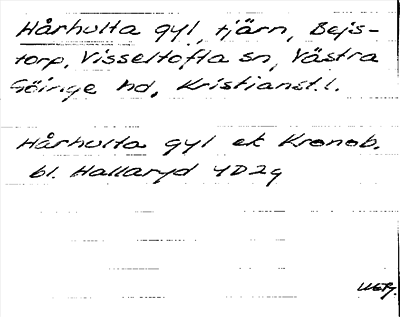 Hårhulta gyl, tjärn, Bejs-
torp, Visseltofta sn, Västra
Göinge hd, Kristianst. l.
Hårhulta gyl ek Kronob.
bl. Hallaryd 4D2g